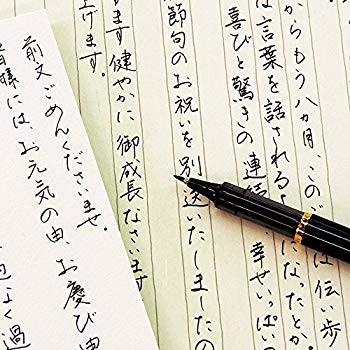 からもう八ヵ月、この は伝い歩
な言葉を話されるよ になったとか
喜びと驚きの連続 幸せいっぱいの
節句のお祝いを別送いたしましたの
ます 健やかに御成長なさいます
上げます。
前文ごめんくださいませ。
皆様には、お元気の由、お慶び申
よく過